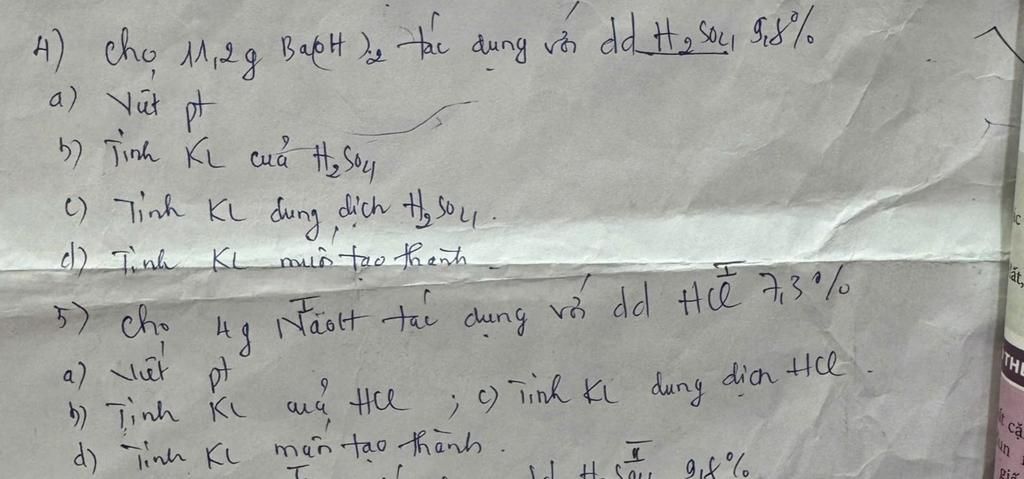 4) Cho 11,2g Ba(OH)2 tác dụng với dd H2SO4 9,8%
a) Viết pt
b) Tính KL của H2SO4
c) Tính KL dung dịch H2SO4.
d) Tính KL muối tạo thành
5) Cho 4g NaOH tác dụng với dd HCl 7,3%
a) Viết pt
b) Tính KL của HCl ; c) Tính KL dung dịch HCl.
d) Tính KL muối tạo thành.
dd H2SO4 9,8%
THE